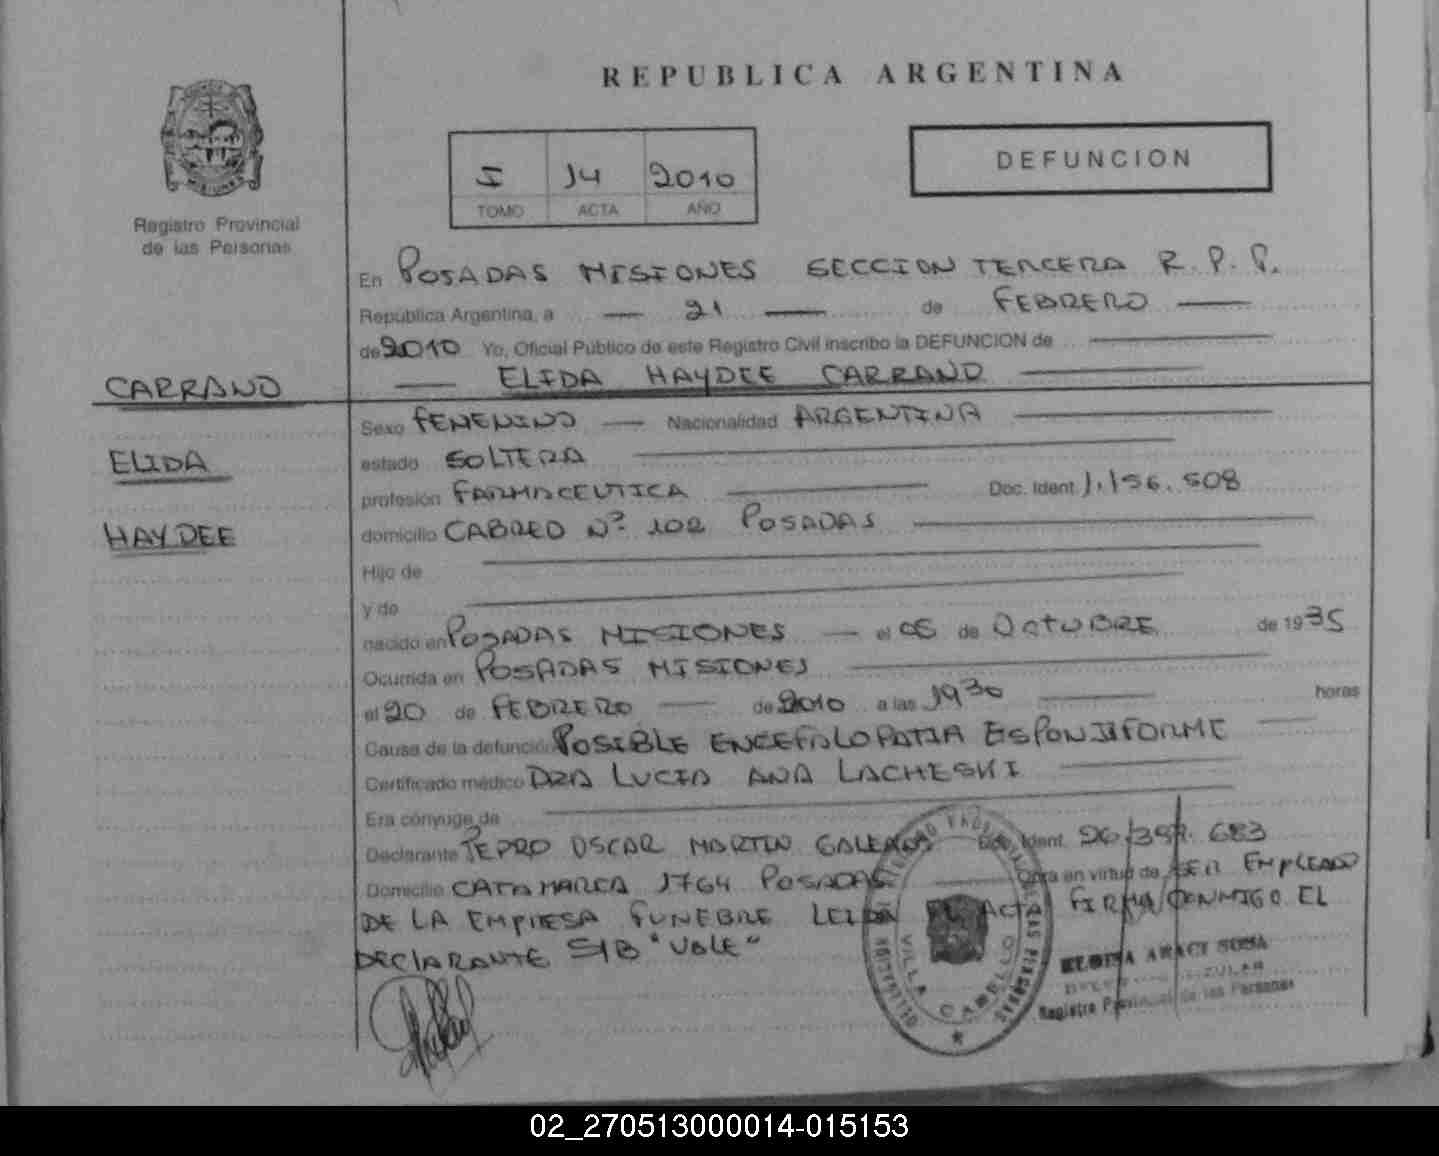 REPUBLICA ARGENTINA
Registro Provincial
de las Personas
I 14 2010
TOMO ACTA AÑO
DEFUNCION
En POSADAS MISIONES SECCION TERCERA R. P. P.
República Argentina, a 21 de FEBRERO
de 2010 Yo, Oficial Público de este Registro Civil inscribo la DEFUNCION de
ELIDA HAYDEE CARRANO
CARRANO
ELIDA
HAYDEE
Sexo FEMENINO Nacionalidad ARGENTINA
estado SOLTERA
profesión FARMACEUTICA Doc. Ident. 1.156.508
domicilio CABRED Nº 102 POSADAS
Hijo de
y de
nacido en POSADAS MISIONES el 06 de OCTUBRE de 1935
Ocurrida en POSADAS MISIONES
el 20 de FEBRERO de 2010 a las 19 30 horas
Causa de la defunción POSIBLE ENCEFALOPATIA ESPONJIFORME
Certificado médico DRA LUCIA ANA LACHESKI
Era cónyuge de
Declarante PEDRO OSCAR MARTIN Doc. Ident.
Domicilio CATAMARCA 1764 POSADAS Obra en virtud de SER EMPLEADO
DE LA EMPRESA FUNEBRE FIRMA CONMIGO EL
DECLARANTE S/B "VALE"
VILLA CABELLO
ELOISA ARACI SOSA
Registro Provincial de las Personas
02_270513000014-015153